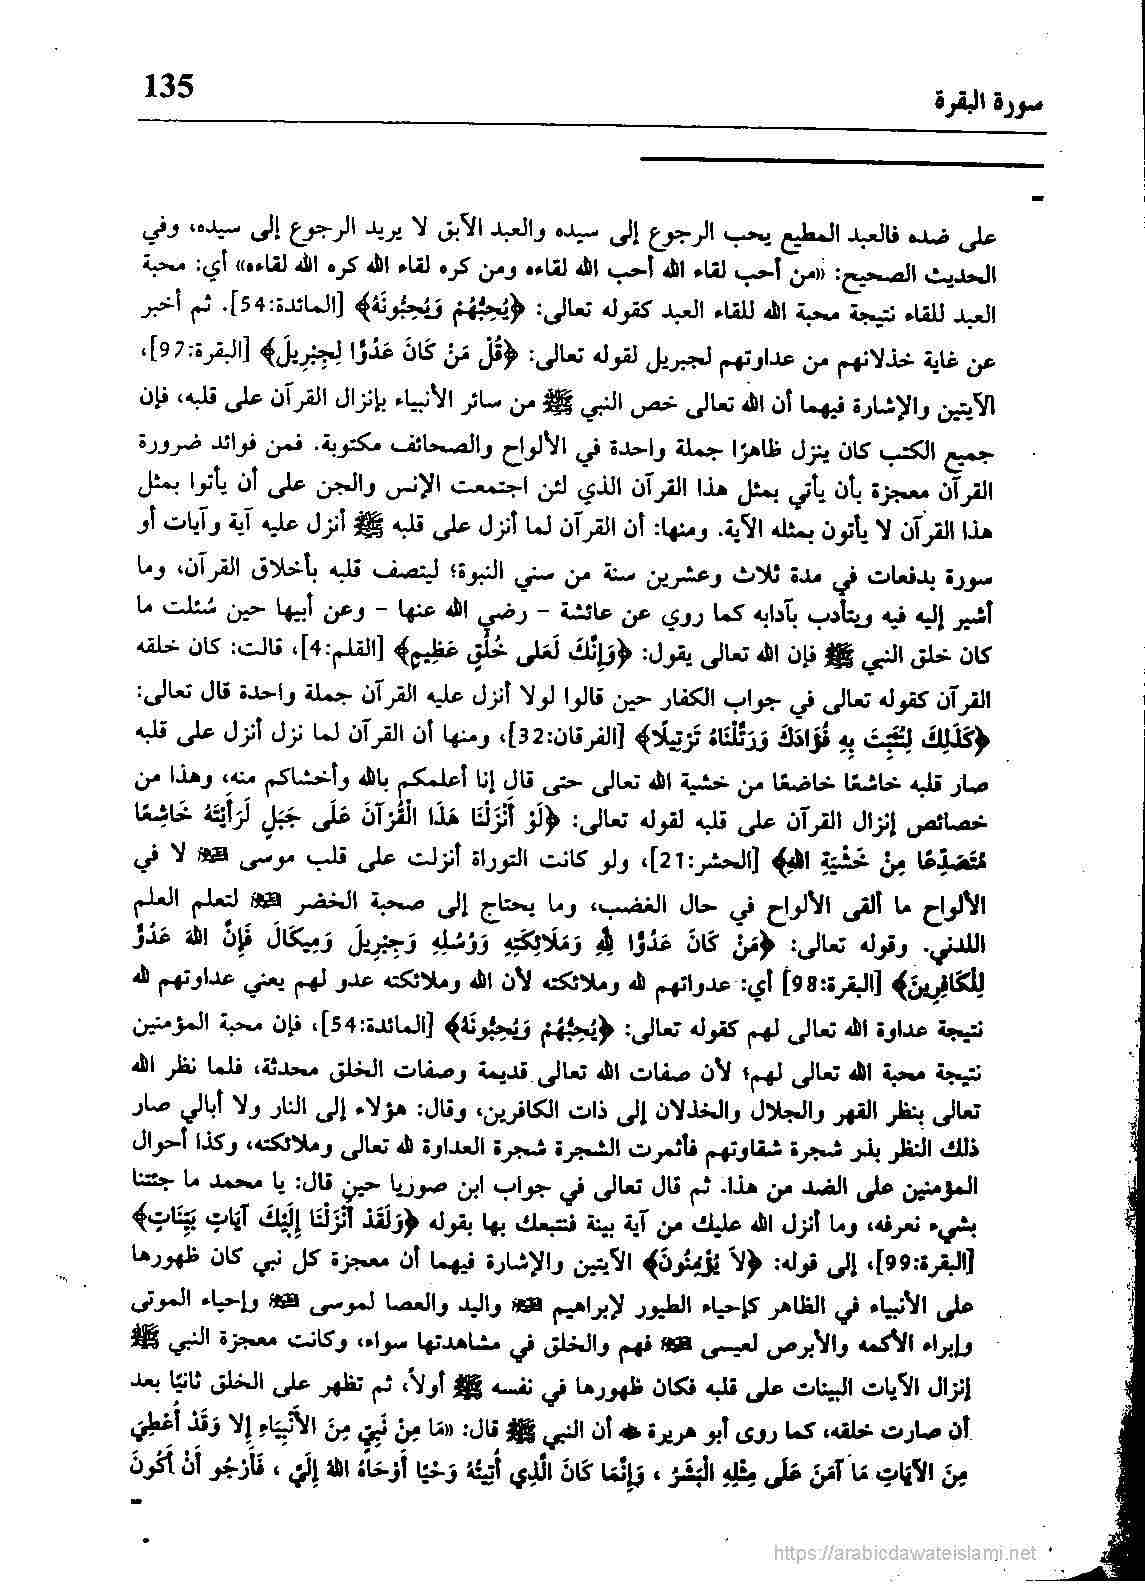 135
سورة البقرة
على ضده فالعبد المطيع يحب الرجوع إلى سيده والعبد الآبق لا يريد الرجوع إلى سيده، وفي
الحديث الصحيح: «من أحب لقاء الله أحب الله لقاءه ومن كره لقاء الله كره الله لقاءه» أي: محبة
العبد للقاء نتيجة محبة الله للقاء العبد كقوله تعالى: ﴿يُحِبُّهُمْ وَيُحِبُّونَهُ﴾ [المائدة:54]. ثم أخبر
عن غاية خذلانهم من عداوتهم لجبريل لقوله تعالى: ﴿قُلْ مَنْ كَانَ عَدُوًّا لِجِبْرِيلَ﴾ [البقرة:97]،
الآيتين والإشارة فيهما أن الله تعالى خص النبي ﷺ من سائر الأنبياء بإنزال القرآن على قلبه، فإن
جميع الكتب كان ينزل ظاهرًا جملة واحدة في الألواح والصحائف مكتوبة. فمن فوائد ضرورة
القرآن معجزة بأن يأتي بمثل هذا القرآن الذي لئن اجتمعت الإنس والجن على أن يأتوا بمثل
هذا القرآن لا يأتون بمثله الآية. ومنها: أن القرآن لما أنزل على قلبه ﷺ أنزل عليه آية وآيات أو
سورة بدفعات في مدة ثلاث وعشرين سنة من سني النبوة؛ ليتصف قلبه بأخلاق القرآن، وما
أشير إليه فيه ويتأدب بآدابه كما روي عن عائشة - رضي الله عنها - وعن أبيها حين سُئلت ما
كان خلق النبي ﷺ فإن الله تعالى يقول: ﴿وَإِنَّكَ لَعَلى خُلُقٍ عَظِيمٍ﴾ [القلم:4]، قالت: كان خلقه
القرآن كقوله تعالى في جواب الكفار حين قالوا لولا أنزل عليه القرآن جملة واحدة قال تعالى:
﴿كَذَلِكَ لِنُثَبِّتَ بِهِ فُؤَادَكَ وَرَتَّلْنَاهُ تَرْتِيلًا﴾ [الفرقان:32]، ومنها أن القرآن لما نزل أنزل على قلبه
صار قلبه خاشعًا خاضعًا من خشية الله تعالى حتى قال إنا أعلمكم بالله وأخشاكم منه، وهذا من
خصائص إنزال القرآن على قلبه لقوله تعالى: ﴿لَوْ أَنْزَلْنَا هَذَا الْقُرْآنَ عَلَى جَبَلٍ لَرَأَيْتَهُ خَاشِعًا
مُتَصَدِّعًا مِنْ خَشْيَةِ اللهِ﴾ [الحشر:21]، ولو كانت التوراة أنزلت على قلب موسى ﷺ لا في
الألواح ما ألقى الألواح في حال الغضب، وما يحتاج إلى صحبة الخضر ﷺ لتعلم العلم
اللدني. وقوله تعالى: ﴿مَنْ كَانَ عَدُوًّا لِلَّهِ وَمَلَائِكَتِهِ وَرُسُلِهِ وَجِبْرِيلَ وَمِيكَالَ فَإِنَّ اللهَ عَدُوٌّ
لِلْكَافِرِينَ﴾ [البقرة:98] أي: عدواتهم لله وملائكته لأن الله وملائكته عدو لهم يعني عداوتهم لله
نتيجة عداوة الله تعالى لهم كقوله تعالى: ﴿يُحِبُّهُمْ وَيُحِبُّونَهُ﴾ [المائدة:54]، فإن محبة المؤمنين
نتيجة محبة الله تعالى لهم؛ لأن صفات الله تعالى قديمة وصفات الخلق محدثة، فلما نظر الله
تعالى بنظر القهر والجلال والخذلان إلى ذات الكافرين، وقال: هؤلاء إلى النار ولا أبالي صار
ذلك النظر بذر شجرة شقاوتهم فأثمرت الشجرة شجرة العداوة لله تعالى وملائكته، وكذا أحوال
المؤمنين على الضد من هذا. ثم قال تعالى في جواب ابن صوريا حين قال: يا محمد ما جئتنا
بشيء نعرفه، وما أنزل الله عليك من آية بينة فنتبعك بها بقوله ﴿وَلَقَدْ أَنْزَلْنَا إِلَيْكَ آيَاتٍ بَيِّنَاتٍ﴾
[البقرة:99]، إلى قوله: ﴿لاَ يُؤْمِنُونَ﴾ الآيتين والإشارة فيهما أن معجزة كل نبي كان ظهورها
على الأنبياء في الظاهر كإحياء الطيور لإبراهيم ﷺ واليد والعصا لموسى ﷺ وإحياء الموتى
وإبراء الأكمه والأبرص لعيسى ﷺ فهم والخلق في مشاهدتها سواء، وكانت معجزة النبي ﷺ
إنزال الآيات البينات على قلبه فكان ظهورها في نفسه ﷺ أولاً، ثم تظهر على الخلق ثانيًا بعد
أن صارت خلقه، كما روى أبو هريرة ﷺ أن النبي ﷺ قال: «مَا مِنْ نَبِيٍّ مِنَ الأَنْبِيَاءِ إِلا وَقَدْ أُعْطِيَ
مِنَ الآيَاتِ مَا آمَنَ عَلَى مِثْلِهِ الْبَشَرُ ، وَإِنَّمَا كَانَ الَّذِي أُتِيتُهُ وَحْيًا أَوْحَاهُ اللهُ إِلَيَّ ، فَأَرْجُو أَنْ أَكُونَ
https://arabicdawateislami.net